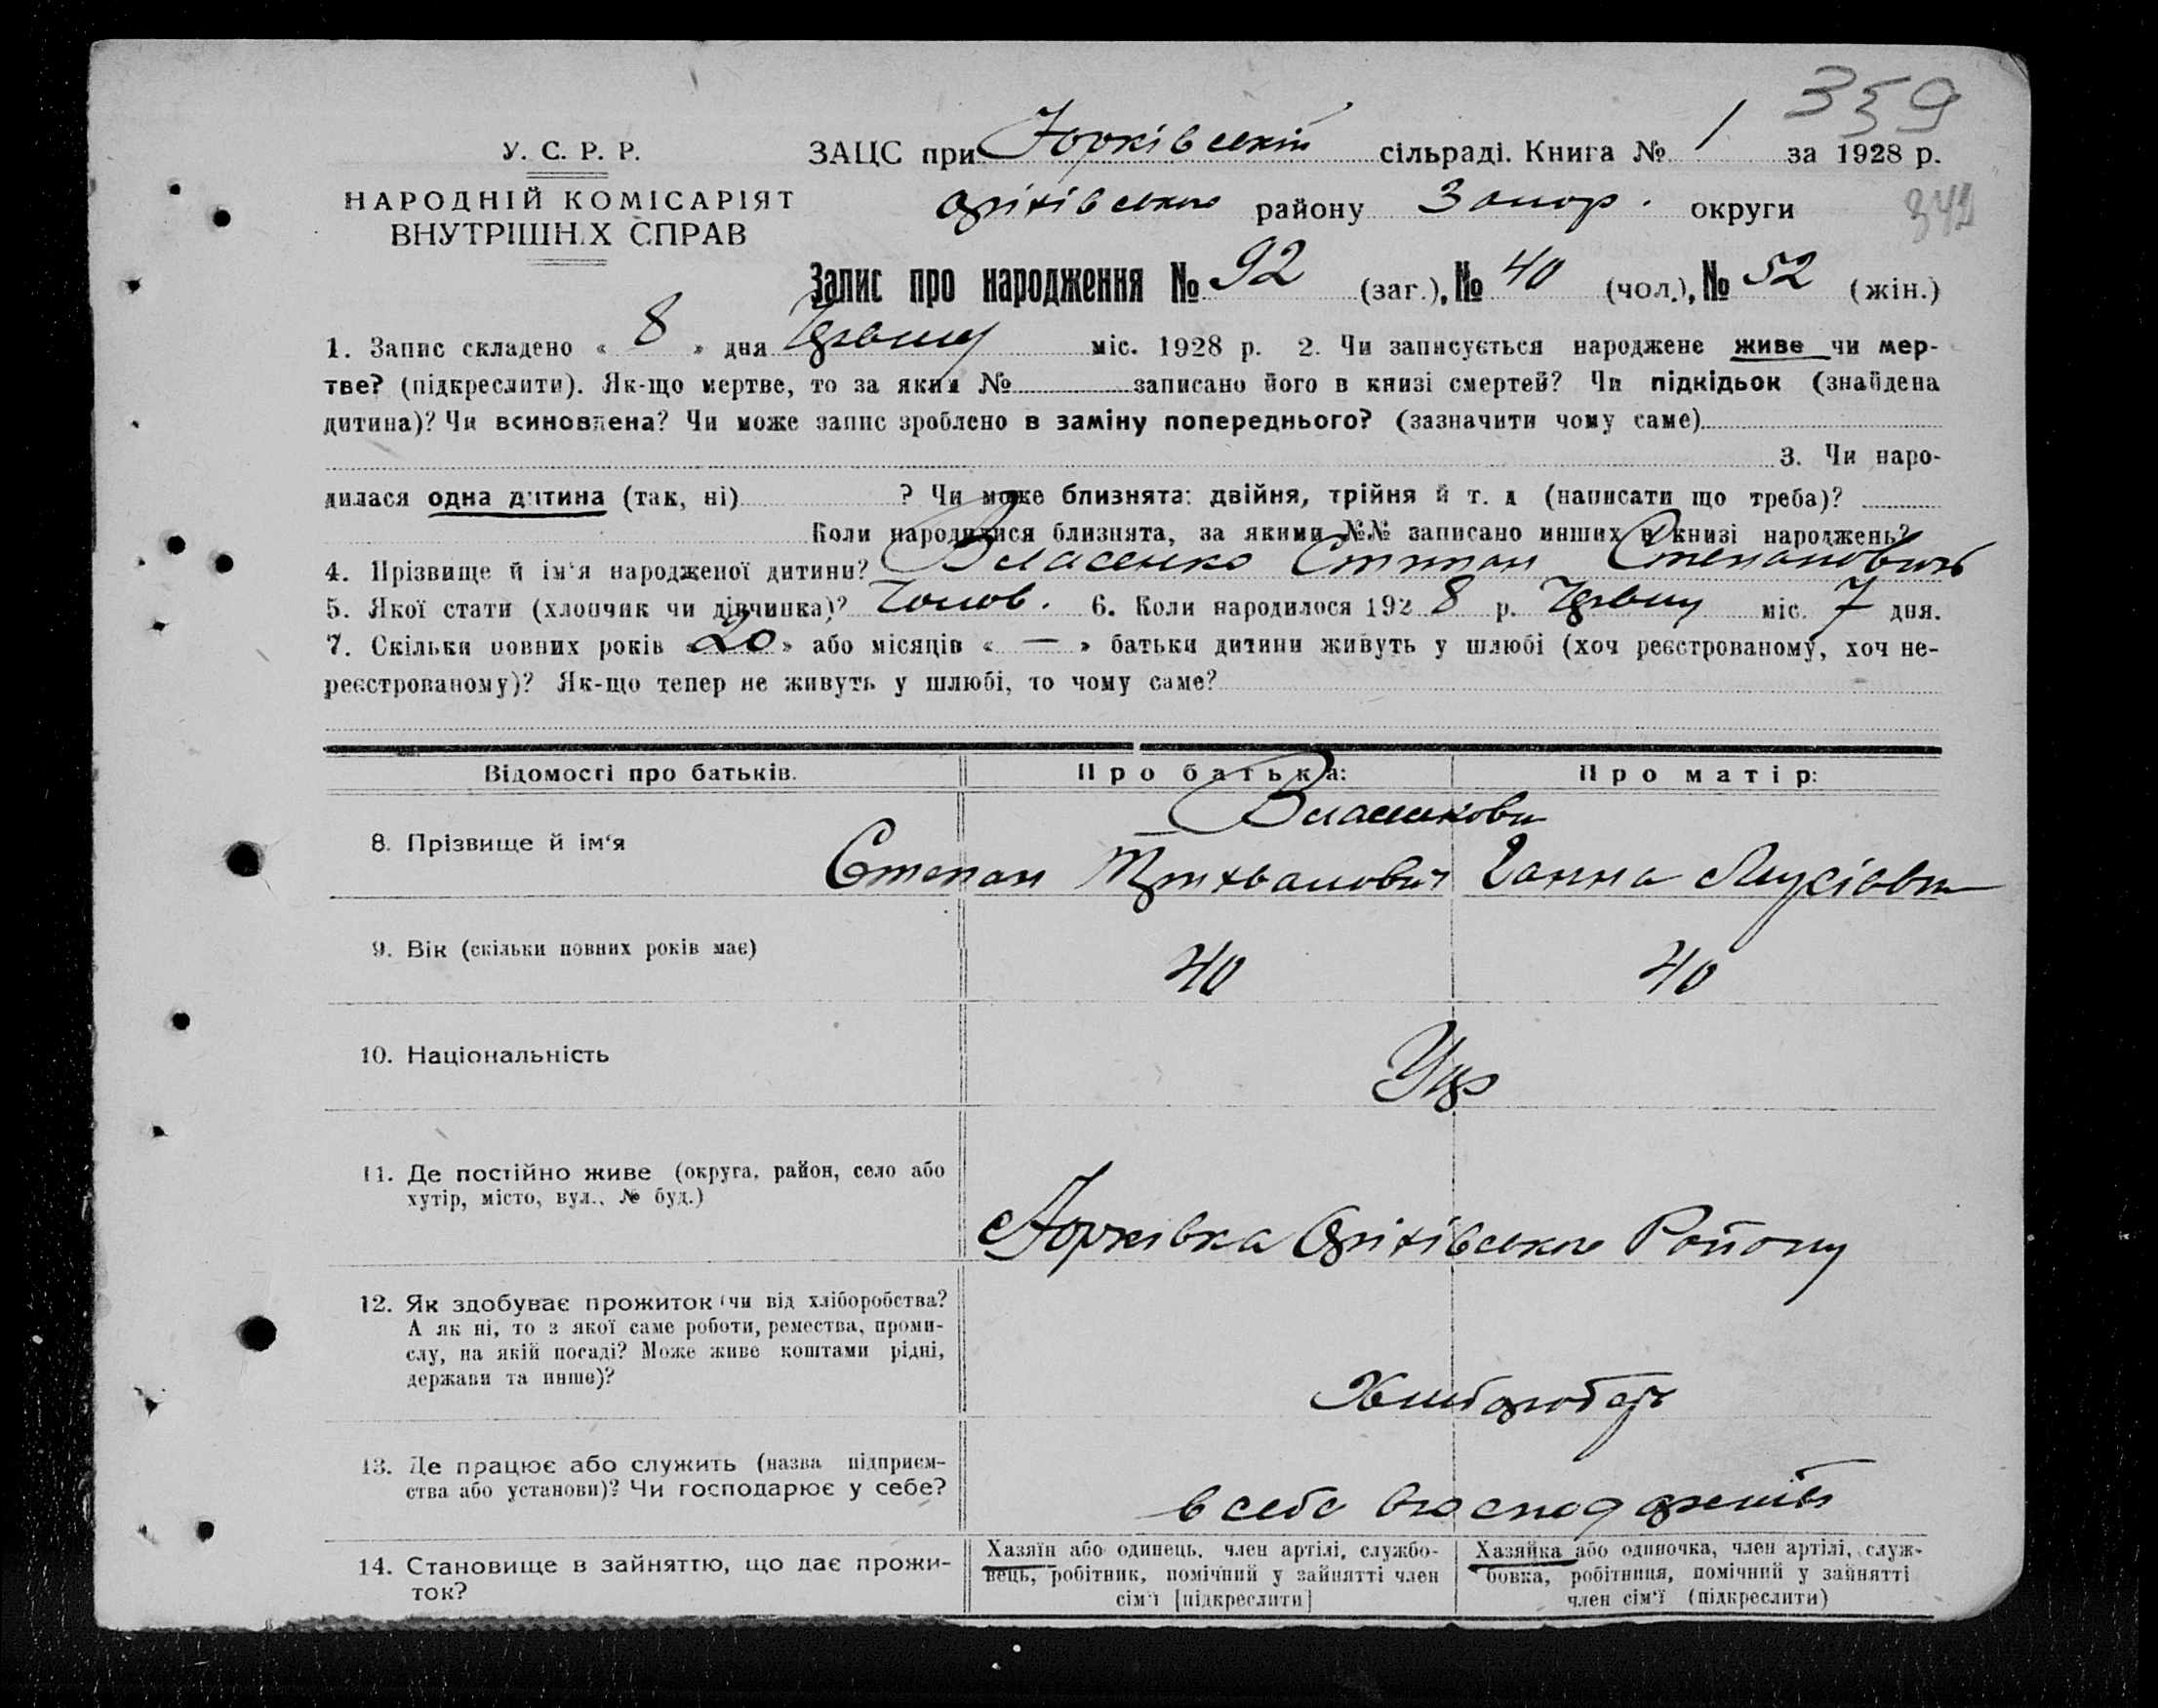 359
У. С. Р. Р.
ЗАЦС при Юрківській сільраді. Книга № 1 за 1928 р.
НАРОДНІЙ КОМІСАРІЯТ
ВНУТРІШНІХ СПРАВ
Оріхівського району Запор. округи
342
Запис про народження № 92 (заг.), № 40 (чол.), № 52 (жін.)
1. Запис складено « 8 » дня Червня міс. 1928 р. 2. Чи записується народжене живе чи мер-
тве? (підкреслити). Як-що мертве, то за яким № записано його в книзі смертей? Чи підкідьок (знайдена
дитина)? Чи всиновлена? Чи може запис зроблено в заміну попереднього? (зазначити чому саме)
3. Чи наро-
дилася одна дитина (так, ні) ? Чи може близнята: двійня, трійня й т. д (написати що треба)?
Коли народилися близнята, за якими №№ записано инших в книзі народжень?
4. Прізвище й ім'я народженої дитини? Власенко Степан Степанович
5. Якої стати (хлопчик чи дівчинка)? Чолов. 6. Коли народилося 1928 р. Червня міс. 7 дня.
7. Скільки повних років « 20 » або місяців « — » батьки дитини живуть у шлюбі (хоч реєстрованому, хоч не-
реєстрованому)? Як-що тепер не живуть у шлюбі, то чому саме?
Відомості про батьків. Про батька: Про матір:
8. Прізвище й ім'я
Степан Ганна
9. Вік (скільки повних років має) 40 40
10. Національність Укр
11. Де постійно живе (округа, район, село або
хутір, місто, вул., № буд.)
с Юрківка Оріхівського Району
12. Як здобуває прожиток (чи від хліборобства?
А як ні, то з якої саме роботи, ремества, проми-
слу, на якій посаді? Може живе коштами рідні,
держави та инше)?
13. Де працює або служить (назва підприєм-
ства або установи)? Чи господарює у себе?
в себе
14. Становище в зайняттю, що дає прожи-
ток?
Хазяїн або одинець, член артілі, службо-
вець, робітник, помічний у зайнятті член
сім'ї [підкреслити]
Хазяйка або одиночка, член артілі, служ-
бовка, робітниця, помічний у зайнятті
член сім'ї (підкреслити)